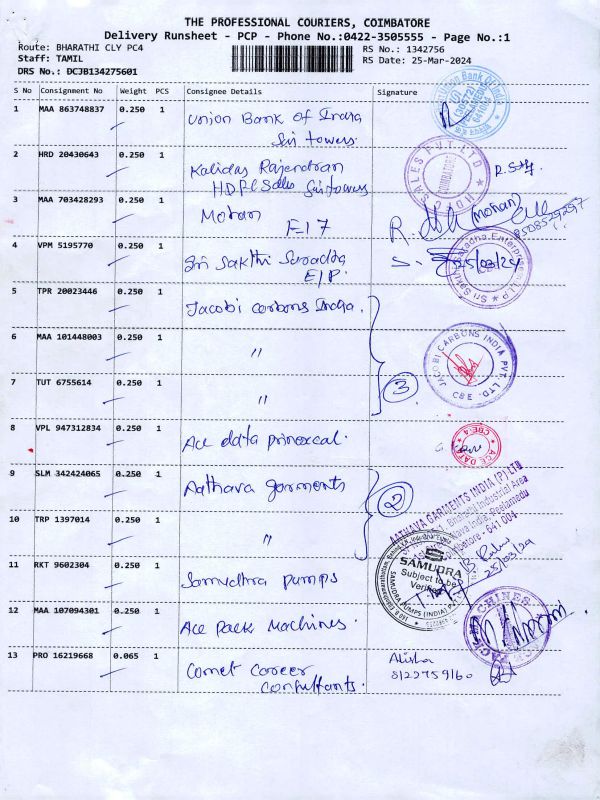 THE PROFESSIONAL COURIERS, COIMBATORE
Delivery Runsheet - PCP - Phone No.:0422-3505555 - Page No.:1
Route: BHARATHI CLY PC4
RS No.: 1342756
Staff: TAMIL
RS Date: 25-Mar-2024
DRS No.: DCJB134275601
S No Consignment No Weight PCS Consignee Details Signature
1 MAA 863748837 0.250 1 Union Bank of India
Siri towers
2 HRD 20430643 0.250 1 Kalidas Rajendran
HDFC Sales Siri towers
HDFC SALES PVT LTD
3 MAA 703428293 0.250 1 Mohan
F-17
(Mohan)
4 VPM 5195770 0.250 1 Sri Sakthi
E/P.
25/03/24
5 TPR 20023446 0.250 1 Jacobi carbons India.
6 MAA 101448003 0.250 1 "
JACOBI CARBONS INDIA PVT. LTD.
CBE
7 TUT 6755614 0.250 1 "
3
8 VPL 947312834 0.250 1 Ace data
ACE DAT
CBE-4
9 SLM 342424065 0.250 1 Aathava garments
2
AATHAVA GARMENTS INDIA (P) LTD
Industrial Area
Peelamedu
Coimbatore - 641 004
10 TRP 1397014 0.250 1 "
25/03/24
11 RKT 9602304 0.250 1 Samudhra pumps
SAMUDRA
Subject to be
SAMUDRA PUMPS (INDIA) PVT
12 MAA 107094301 0.250 1 Ace Pack Machines.
13 PRO 16219668 0.065 1 Comet Career
Consultants.
8122759160